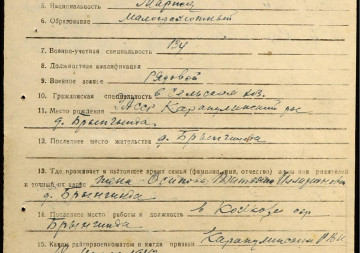 5. Национальность Мариец
6. Образование Малограмотный
7. Военно-учетная специальность 134
8. Должностная квалификация
9. Военное звание Рядовой
10. Гражданская специальность в Сельском хоз.
11. Место рождения АССР Каракулинский
д. Брынгинда
12. Последнее место жительства д. Брынгинда
13. Где проживает в настоящее время семья (фамилия, имя, отчество)
и точный их адрес жена Осипова
д. Брынгинда
14. Последнее место работы и должность в
Брынгинда
15. Каким райгорвоенкоматом и когда призван Каракулинским РВК